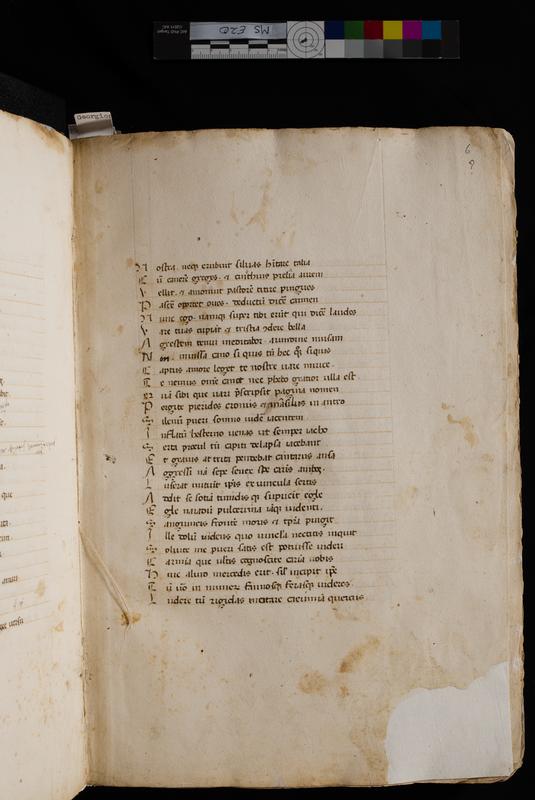 Georgio
MS E20
6
9
N ostra neq3 erubuit siluas hītare talia
C ū canerē reges & cinthius prelia aurem
V ellit & amonuit pastorē titire pingues
P ascē oportet oues deductū dicē carmen
N unc ego namq3 super tibi erūt qui dicē laudes
V are tuas cupiāt & tristia ɔdere bella
A grestem tenui meditabor arundine musam
N on iniussa cano si quis tū hec qq3 siquis
C aptus amore leget te nostre uare mirice
T e nemus omē canet nec phebo gratior ulla est
q nā sibi que uari pscripsit pagina nomen
P ergite pierides cromis & mnasilus in antro
S ilenū pueri somno uidē iacentem
I nflatū hesterno uenas ut semper iacho
S erta procul tū capiti delapsa iacebant
E t grauis attrita pendebat cantarus ansa
A ggressi nā sepe senex spe carīs ambos
I niecerat ipsis ex uincula sertis
A ddit se sotiā timidis q3 supuenit egle
E gle naiadū pulcerrima iāq3 uidenti
S anguineis frontē moris & tpra pingit
I lle dolū ridens quo uincula nectitis inquit
S oluite me pueri satis est potuisse uideri
C armina que uultis cognoscite carīa uobis
H uic aliud mercedis erit sil incipit ipse
T ū uō in numerū faunosq3 ferasq3 uideres
L udere tū rigidas motare cacumina quercus